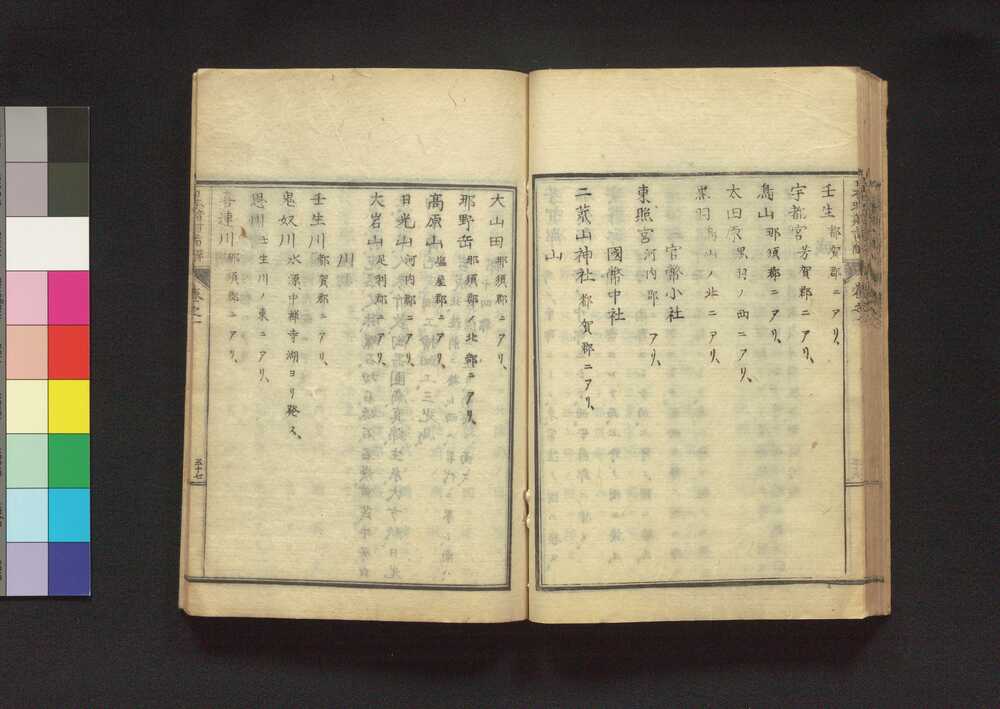 壬生 都賀郡ニアリ、
宇都宮 芳賀郡ニアリ、
烏山 那須郡ニアリ、
太田原 黒羽ノ西ニアリ、
黒羽 烏山ノ北ニアリ、
官幣小社
東照宮 河内郡ニアリ、
國幣中社
二荒山神社 都賀郡ニアリ、
山
大山田 那須郡ニアリ、
那野岳 那須郡ノ北部ニアリ、
高原山 塩屋郡ニアリ、
日光山 河内郡ニアリ、
大岩山 足利郡ニアリ、
川
壬生川 都賀郡ニアリ、
鬼奴川 水源中禅寺湖ヨリ発ス、
思川 壬生川ノ東ニアリ、
喜連川 那須郡ニアリ、
五十七